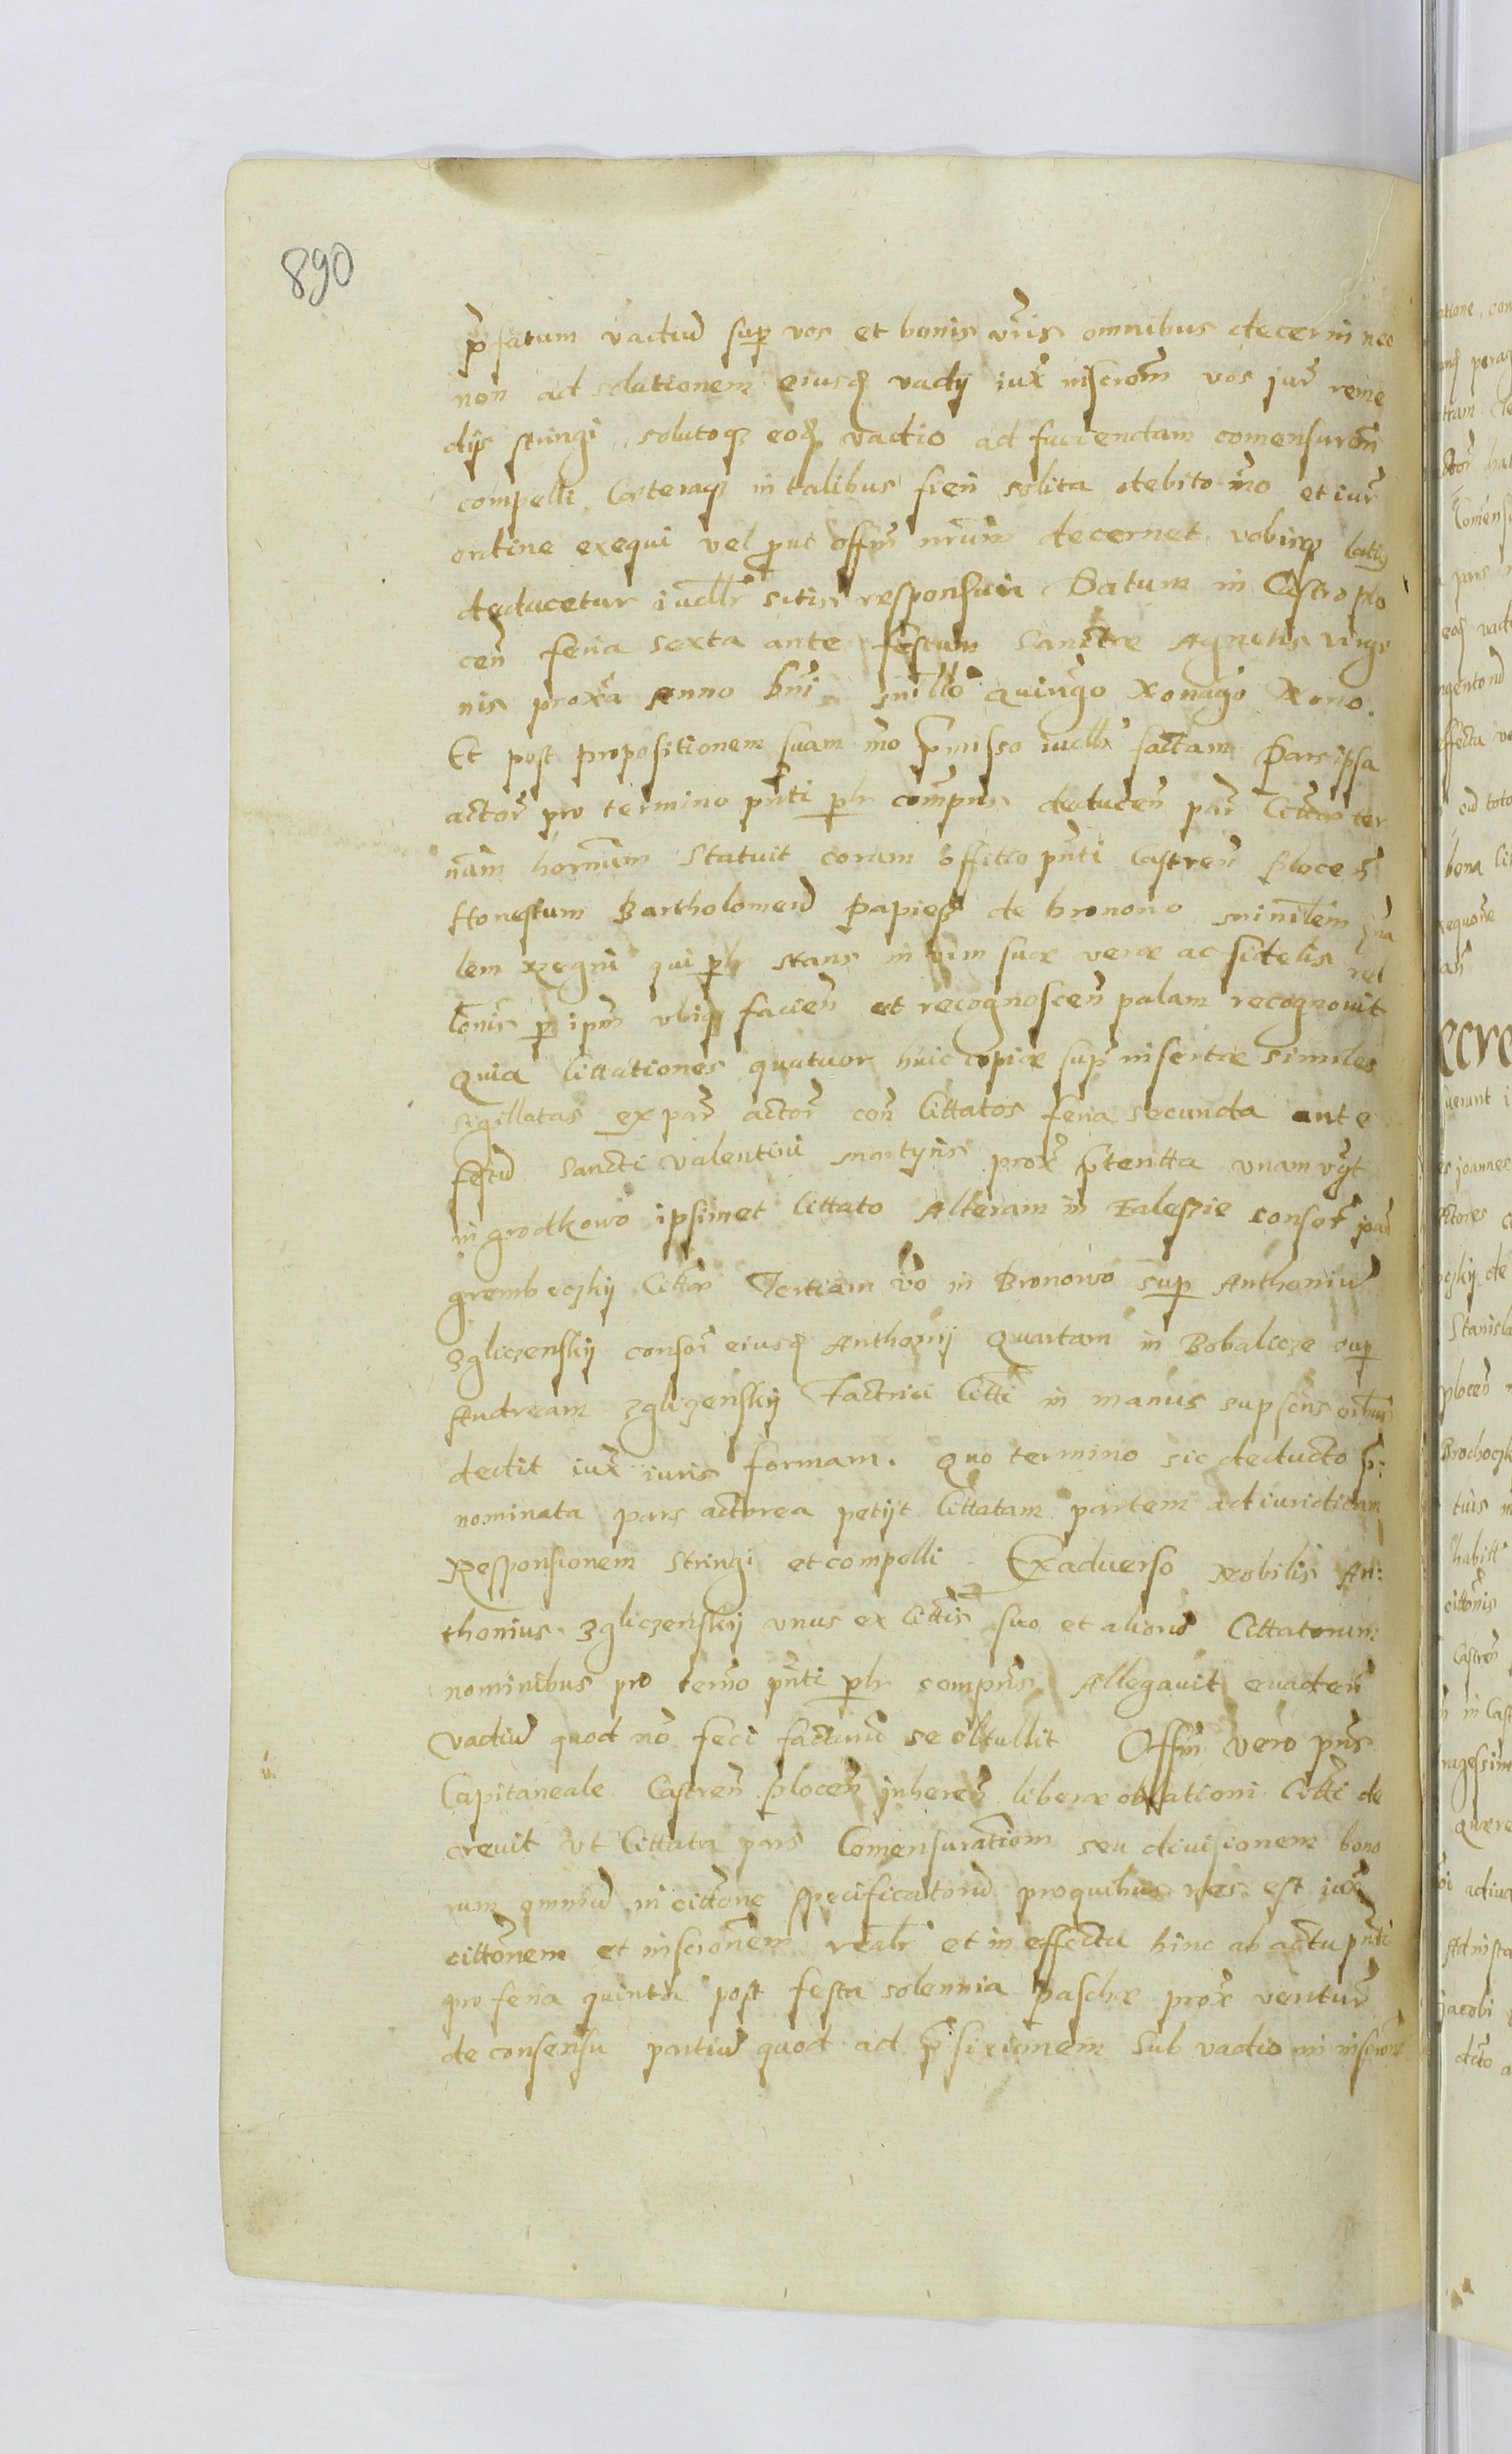 890
p̃fatum vadiũ sup vos et bonis vr̃is omnibus decerni nec
non ad solutionem eiusq̃ vadij iux̃ inscrõm vos jur̃ reme
dijs stringi, solutoqz eoq̃ vadio ad faciendam comensurõn
compelli Caeteraqz in talibus fieri solita debito mõ et iur̃
ordine exequi vel put offm̃ nr̃um decernet, vobisqz latiq
deducetur iudllr̃ sitis responsuri Datum in Castro plo
ceñ feria sexta ante festum Sanctae Agnetis virgi
nis prox̃a Anno Dñi millõ Quingõ Nonagõ Nono.
Et post propositionem suam mõ p̃misso iudllr̃ factam Pars ipsa
actor̃ pro termino pñti plr compns̃ deducen̄ par̃ Cittar̃ ter
nãm hornum̃ Statuit coram offitio pñti Castren̄ Plocen̄
Honestum Bartholomeũ Papiess de bronowo ministẽm gña
lem Regni qui plr stans in vim suae verae ac fidelis rel
tõnis p ipm̃ ubiqz facien̄ et recognoscen̄ palam recognovit
Quia Cittationes quatuor huic copiae sup̃ insertae similes
sigillatas ex par̃ actor̃ con̄ Cittatos feria secunda ante
festũ Sancti valentini martyris prox̃ p̃teritta unam vg̃t
in grodkowo ipsimet Cittato Alteram in Zaleszie consor̃ joañ
grembeczkij Cittar̃ Tertiam võ in Bronowo sup Anthoniũ
Zgliczenskij consor̃ eiusq̃ Anthonij Quartam in Bobalicze sup
Andream Zgliczenskij Factrici Citti in manus supscris oĩbus
dedit iux̃ iuris formam. Quo termino sic deducto p̃:
nominata pars actorea petijt Cittatam partem ad iuridicam
Responsionem stringi et compelli. Exadverso Nobilis An:
thonius Zgliczenskij unus ex Cittis̃ suo et alionũ Cittatorum
nominibus pro termõ pñti plr compns̃ Allegavit evaden̄
vadiũ quod nõ feci facturũ se obtullit Offm̃ vero pñs
Capitaneale Castren̄ Plocen̄ inheren̄ liberae oblationi Citti de
crevit ut Cittata pars Comensurationem seu divisionem bono
rum omniũ in cittõne specificatorũ pro quibus res est iux̃
cittõnem et inscriõnem realr̃ et in effectu hinc ab actu pñti
pro feria quinta post festa solennia Paschae prox̃ ventur̃
de consensu partiũ quod ad p̃fixionem Sub vadio in inscriõne